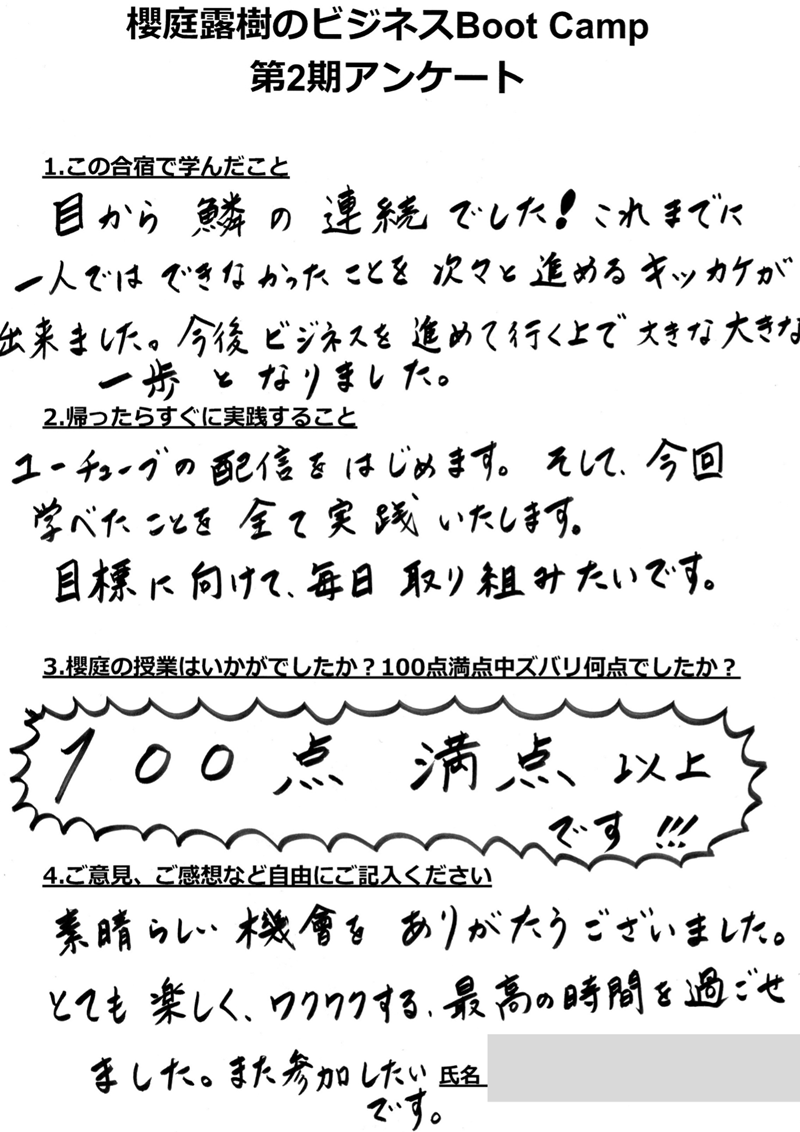 櫻庭露樹のビジネスBoot Camp
第2期アンケート
1.この合宿で学んだこと
目から鱗の連続でした！これまでに
一人ではできなかったことを次々と進めるキッカケが
出来ました。今後ビジネスを進めて行く上で大きな大きな
一歩となりました。
2.帰ったらすぐに実践すること
ユーチューブの配信をはじめます。そして、今回
学べたことを全て実践いたします。
目標に向けて、毎日取り組みたいです。
3.櫻庭の授業はいかがでしたか？100点満点中ズバリ何点でしたか？
100点満点以上
です!!!
4.ご意見、ご感想など自由にご記入ください
素晴らしい機會をありがたうございました。
とても楽しく、ワクワクする、最高の時間を過ごせ
ました。また参加したい
です。
氏名